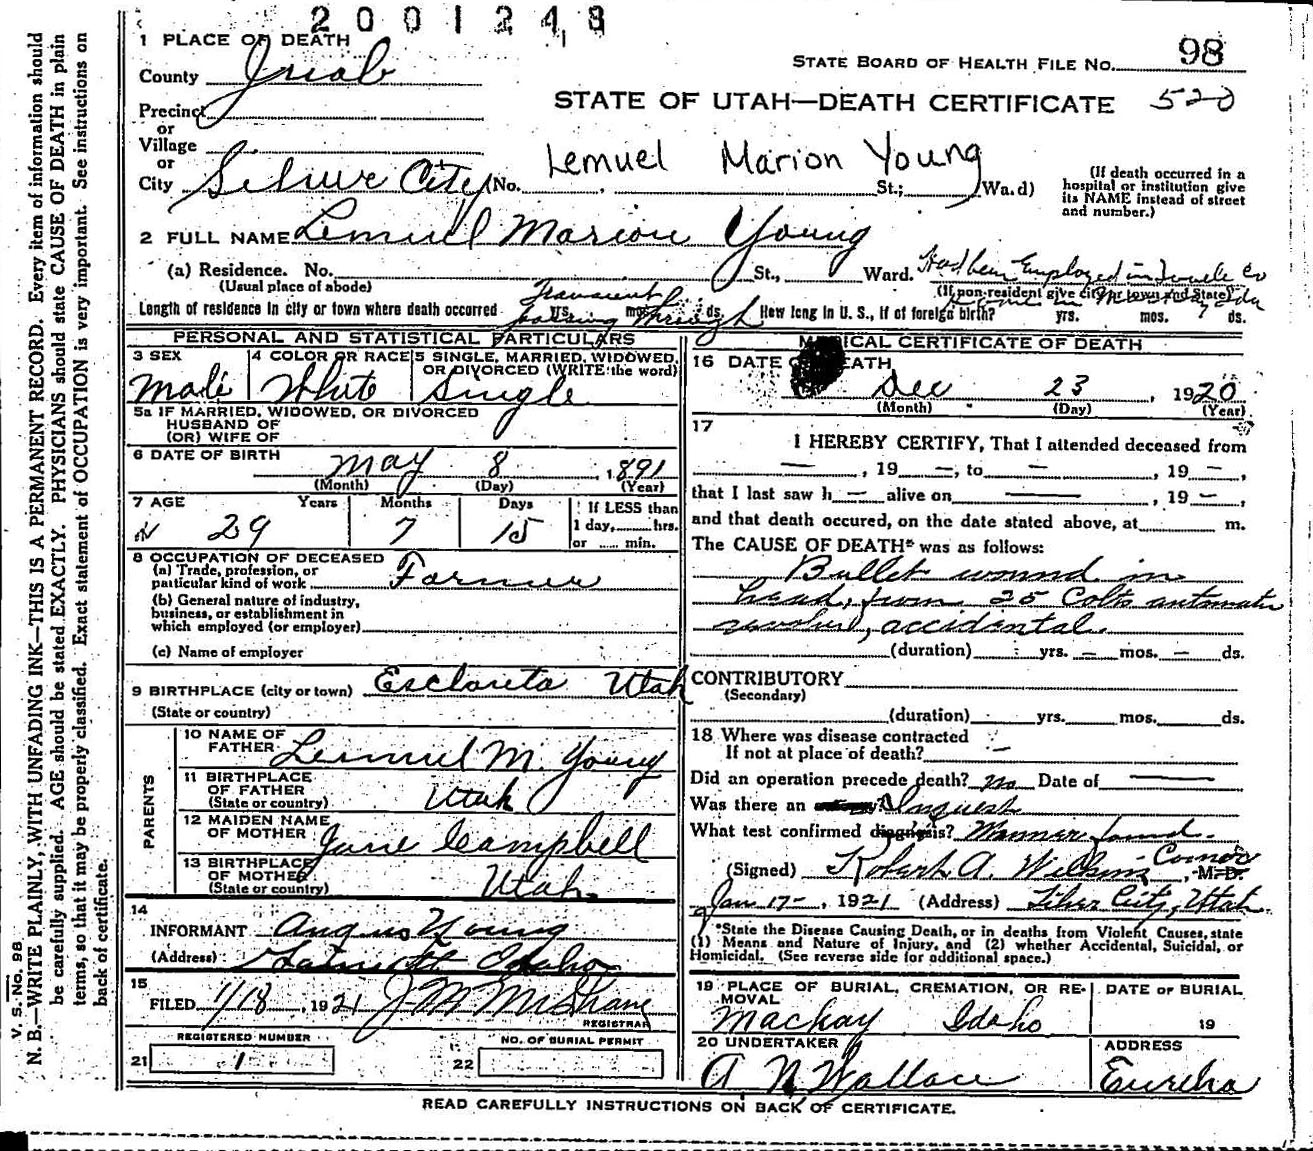 2001243
1 PLACE OF DEATH
County Juab
STATE BOARD OF HEALTH FILE NO. 98
STATE OF UTAH—DEATH CERTIFICATE 520
Precinct
or
Village
or
City Silver City (No. St.; Ward)
Lemuel Marion Young
(If death occurred in a
hospital or institution give
its NAME instead of street
and number.)
2 FULL NAME Lemuel Marion Young
(a) Residence. No. St., Ward. Had been Employed in Tooele Co
(Usual place of abode)
(If non-resident give city or town and State)
Length of residence in city or town where death occurred yrs. mos. ds. How long in U. S., if of foreign birth? yrs. mos. ds.
Transient
passing through
PERSONAL AND STATISTICAL PARTICULARS
3 SEX
Male
4 COLOR OR RACE
White
5 SINGLE, MARRIED, WIDOWED,
OR DIVORCED (WRITE the word)
Single
5a IF MARRIED, WIDOWED, OR DIVORCED
HUSBAND OF
(OR) WIFE OF
6 DATE OF BIRTH
May 8, 1891
(Month) (Day) (Year)
7 AGE Years Months Days
29 7 15
If LESS than
1 day, hrs.
or min.
8 OCCUPATION OF DECEASED
(a) Trade, profession, or
particular kind of work Farmer
(b) General nature of industry,
business, or establishment in
which employed (or employer)
(c) Name of employer
9 BIRTHPLACE (city or town) Esclanta Utah
(State or country)
PARENTS
10 NAME OF
FATHER Lemuel M. Young
11 BIRTHPLACE
OF FATHER
(State or country) Utah
12 MAIDEN NAME
OF MOTHER Jane Campbell
13 BIRTHPLACE
OF MOTHER
(State or country) Utah
14
INFORMANT Angus Young
(Address) Idaho
15
FILED 1/18, 1921 J M McShane
REGISTRAR
REGISTERED NUMBER
21 1
NO. OF BURIAL PERMIT
22
MEDICAL CERTIFICATE OF DEATH
16 DATE OF DEATH
Dec 23, 1920
(Month) (Day) (Year)
17
I HEREBY CERTIFY, That I attended deceased from
— , 19 —, to — , 19 —,
that I last saw h — alive on — , 19 —,
and that death occured, on the date stated above, at m.
The CAUSE OF DEATH* was as follows:
Bullet wound in
head, from 25 Colts automatic
revolver, accidental.
(duration) yrs. — mos. — ds.
CONTRIBUTORY
(Secondary)
(duration) yrs. mos. ds.
18 Where was disease contracted
If not at place of death? —
Did an operation precede death? No Date of —
Was there an Inquest
What test confirmed diagnosis? Manner found.
(Signed) Robert A. Wilkins Coroner, M. D.
Jan 17-, 1921 (Address) Silver City, Utah
*State the Disease Causing Death, or in deaths from Violent Causes, state
(1) Means and Nature of Injury, and (2) whether Accidental, Suicidal, or
Homicidal. (See reverse side for additional space.)
19 PLACE OF BURIAL, CREMATION, OR RE-
MOVAL
Mackay Idaho
DATE OF BURIAL
19
20 UNDERTAKER
A N Wallace
ADDRESS
Eureka
READ CAREFULLY INSTRUCTIONS ON BACK OF CERTIFICATE.
V. S. No. 98
N. B.—WRITE PLAINLY, WITH UNFADING INK—THIS IS A PERMANENT RECORD. Every item of information should
be carefully supplied. AGE should be stated EXACTLY. PHYSICIANS should state CAUSE OF DEATH in plain
terms, so that it may be properly classified. Exact statement of OCCUPATION is very important. See instructions on
back of certificate.